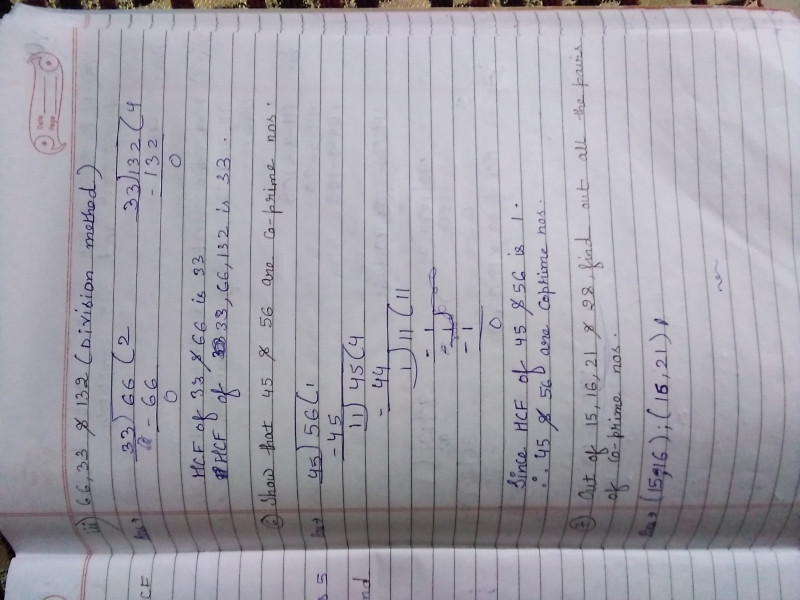 Date
Page
iii) 66,33 & 132 (Division method)
Ans→ 33) 66 (2
- 66
0
33) 132 (4
- 132
0
HCF of 33 & 66 is 33
HCF of 33,66,132 is 33.
6) Show that 45 & 56 are co-prime nos.
Ans→ 45) 56 (1
- 45
11) 45 (4
- 44
1) 11 (11
- 1
- 1
- 1
0
Since HCF of 45 & 56 is 1.
∴ 45 & 56 are coprime nos.
7) Out of 15, 16, 21 & 28 find out all the pairs
of co-prime nos.
Ans→ (15,16); (15,21)
CF
5
nd